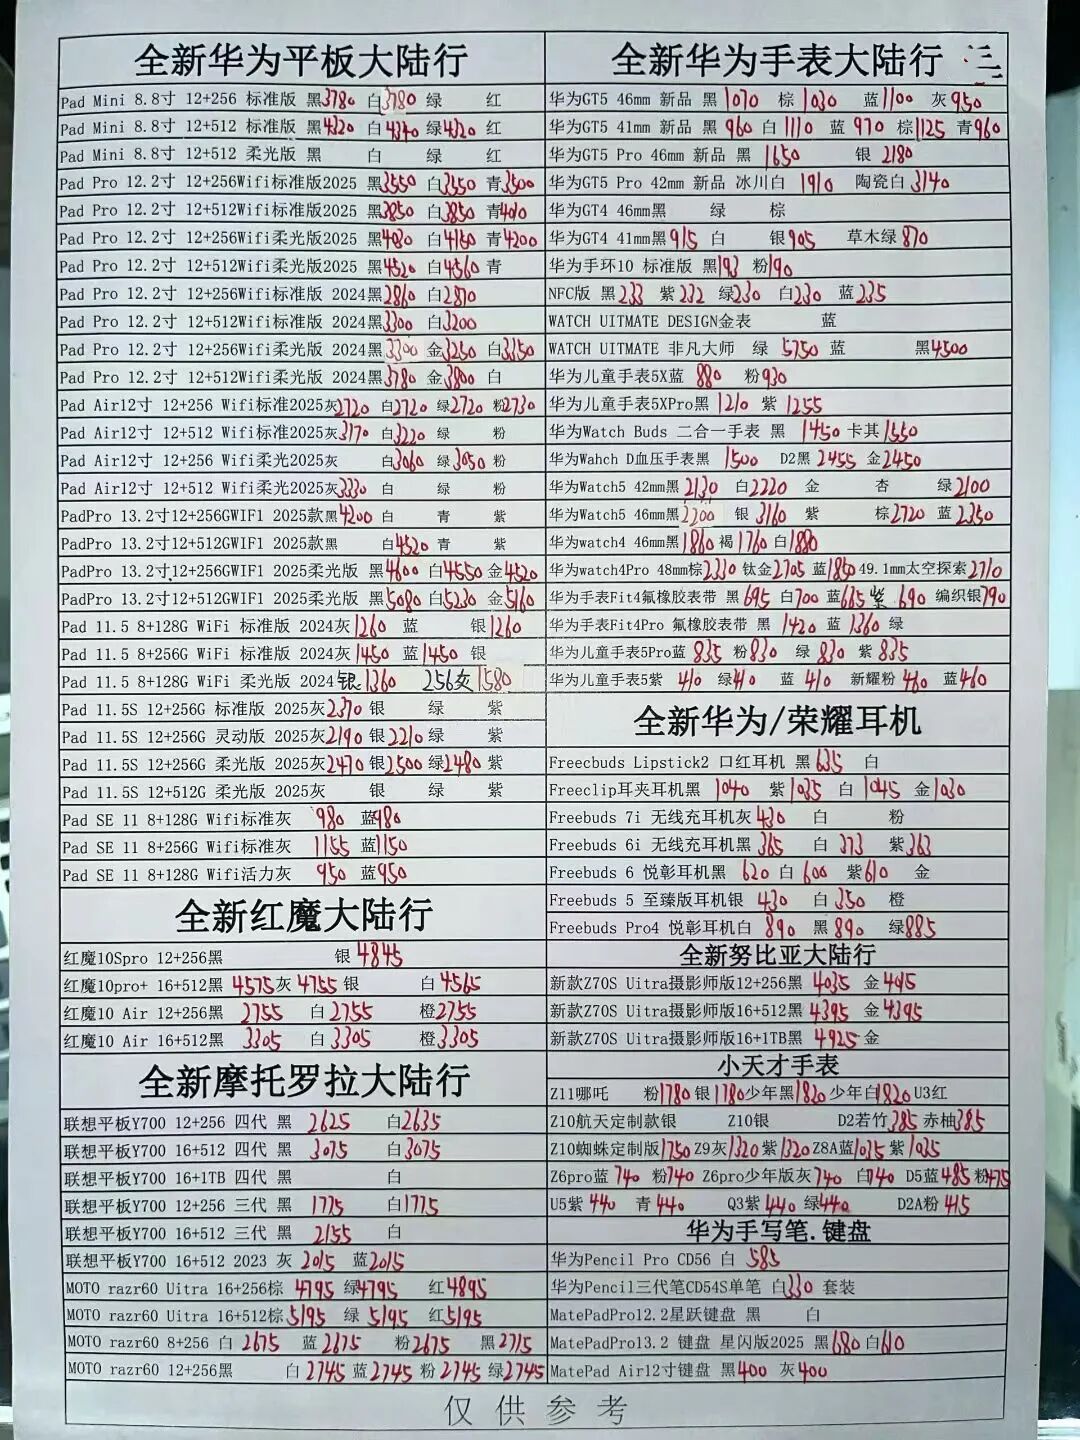 全新华为平板大陆行
Pad Mini 8.8寸 12+256 标准版 黑3780 白3780 绿 红
Pad Mini 8.8寸 12+512 标准版 黑4320 白4340 绿4320 红
Pad Mini 8.8寸 12+512 柔光版 黑 白 绿 红
Pad Pro 12.2寸 12+256Wifi标准版2025 黑3550 白3550 青3500
Pad Pro 12.2寸 12+512Wifi标准版2025 黑3850 白3850 青4010
Pad Pro 12.2寸 12+256Wifi柔光版2025 黑4080 白4150 青4200
Pad Pro 12.2寸 12+512Wifi柔光版2025 黑4520 白4560 青
Pad Pro 12.2寸 12+256Wifi标准版 2024黑2860 白2870
Pad Pro 12.2寸 12+512Wifi标准版 2024黑3300 白3200
Pad Pro 12.2寸 12+256Wifi柔光版 2024黑3300 金3250 白3350
Pad Pro 12.2寸 12+512Wifi柔光版 2024黑3780 金3800 白
Pad Air12寸 12+256 Wifi标准2025灰2720 白2720 绿2720 粉2730
Pad Air12寸 12+512 Wifi标准2025灰3170 白3220 绿 粉
Pad Air12寸 12+256 Wifi柔光2025灰 白3060 绿3050 粉
Pad Air12寸 12+512 Wifi柔光2025灰3330 白 绿 粉
PadPro 13.2寸12+256GWIF1 2025款黑4200 白 青 紫
PadPro 13.2寸12+512GWIF1 2025款黑 白4520 青 紫
PadPro 13.2寸12+256GWIF1 2025柔光版 黑4600 白4550 金4520
PadPro 13.2寸12+512GWIF1 2025柔光版 黑5080 白5230 金5160
Pad 11.5 8+128G WiFi 标准版 2024灰1260 蓝 银1260
Pad 11.5 8+256G WiFi 标准版 2024灰1450 蓝1450 银
Pad 11.5 8+128G WiFi 柔光版 2024银1360 256灰1580
Pad 11.5S 12+256G 标准版 2025灰2370 银 绿 紫
Pad 11.5S 12+256G 灵动版 2025灰2190 银2210 绿 紫
Pad 11.5S 12+256G 柔光版 2025灰2470 银2500 绿2480 紫
Pad 11.5S 12+512G 柔光版 2025灰 银 绿 紫
Pad SE 11 8+128G Wifi标准灰 980 蓝980
Pad SE 11 8+256G Wifi标准灰 1155 蓝1150
Pad SE 11 8+128G Wifi活力灰 950 蓝950
全新红魔大陆行
红魔10Spro 12+256黑 银4845
红魔10pro+ 16+512黑 4575灰 4755 银 白4565
红魔10 Air 12+256黑 2755 白2755 橙2755
红魔10 Air 16+512黑 3305 白3305 橙3305
全新摩托罗拉大陆行
联想平板Y700 12+256 四代 黑 2625 白2635
联想平板Y700 16+512 四代 黑 3075 白3075
联想平板Y700 16+1TB 四代 黑 白
联想平板Y700 12+256 三代 黑 1775 白1775
联想平板Y700 16+512 三代 黑 2155 白
联想平板Y700 16+512 2023 灰 2015 蓝2015
MOTO razr60 Uitra 16+256棕 4795 绿4795 红4895
MOTO razr60 Uitra 16+512棕5195 绿 5195 红5195
MOTO razr60 8+256 白 2675 蓝 2675 粉2675 黑2715
MOTO razr60 12+256黑 白2745 蓝2745 粉2745 绿2745
全新华为手表大陆行
华为GT5 46mm 新品 黑 1070 棕 1030 蓝1100 灰950
华为GT5 41mm 新品 黑 960 白 1110 蓝 970 棕1125 青960
华为GT5 Pro 46mm 新品 黑 1650 银 2180
华为GT5 Pro 42mm 新品 冰川白 1910 陶瓷白3140
华为GT4 46mm黑 绿 棕
华为GT4 41mm黑915 白 银905 草木绿870
华为手环10 标准版 黑193 粉190
NFC版 黑233 紫232 绿230 白230 蓝235
WATCH UITMATE DESIGN金表 蓝
WATCH UITMATE 非凡大师 绿 5750 蓝 黑4500
华为儿童手表5X蓝 880 粉930
华为儿童手表5XPro黑 1210 紫 1255
华为Watch Buds 二合一手表 黑 1450 卡其1550
华为Wahch D血压手表黑 1500 D2黑 2455 金2450
华为Watch5 42mm黑2130 白2220 金 杏 绿2100
华为Watch5 46mm黑2200 银3160 紫 棕2720 蓝2350
华为watch4 46mm黑1860 褐1760 白1880
华为watch4Pro 48mm棕2330 钛金2705 蓝1850 49.1mm太空探索2710
华为手表Fit4氟橡胶表带 黑 695 白700 蓝665 紫 690 编织银790
华为手表Fit4Pro 氟橡胶表带 黑 1420 蓝 1360 绿
华为儿童手表5Pro蓝 835 粉830 绿 830 紫 835
华为儿童手表5紫 410 绿410 蓝 410 新耀粉 460 蓝460
全新华为/荣耀耳机
Freecbuds Lipstick2 口红耳机 黑635 白
Freeclip耳夹耳机黑 1040 紫1035 白 1045 金1030
Freebuds 7i 无线充耳机灰430 白 粉
Freebuds 6i 无线充耳机黑365 白 373 紫363
Freebuds 6 悦彰耳机黑 620 白 600 紫610 金
Freebuds 5 至臻版耳机银 430 白350 橙
Freebuds Pro4 悦彰耳机白 890 黑 890 绿885
全新努比亚大陆行
新款Z70S Uitra摄影师版12+256黑 4035 金4015
新款Z70S Uitra摄影师版16+512黑 4395 金4395
新款Z70S Uitra摄影师版16+1TB黑 4925 金
小天才手表
Z11哪吒 粉1780 银1780 少年黑1820 少年白1820 U3红
Z10航天定制款银 Z10银 D2若竹385 赤柚385
Z10蜘蛛定制版1750 Z9灰1320 紫1320 Z8A蓝1035 紫 1035
Z6pro蓝 740 粉740 Z6pro少年版灰740 白740 D5蓝485 粉475
U5紫 440 青 440 Q3紫440 绿440 D2A粉 415
华为手写笔.键盘
华为Pencil Pro CD56 白 585
华为Pencil三代笔CD54S单笔 白330 套装
MatePadPro12.2星跃键盘 黑 白
MatePadPro13.2 键盘 星闪版2025 黑680 白610
MatePad Air12寸键盘 黑400 灰400
仅供参考